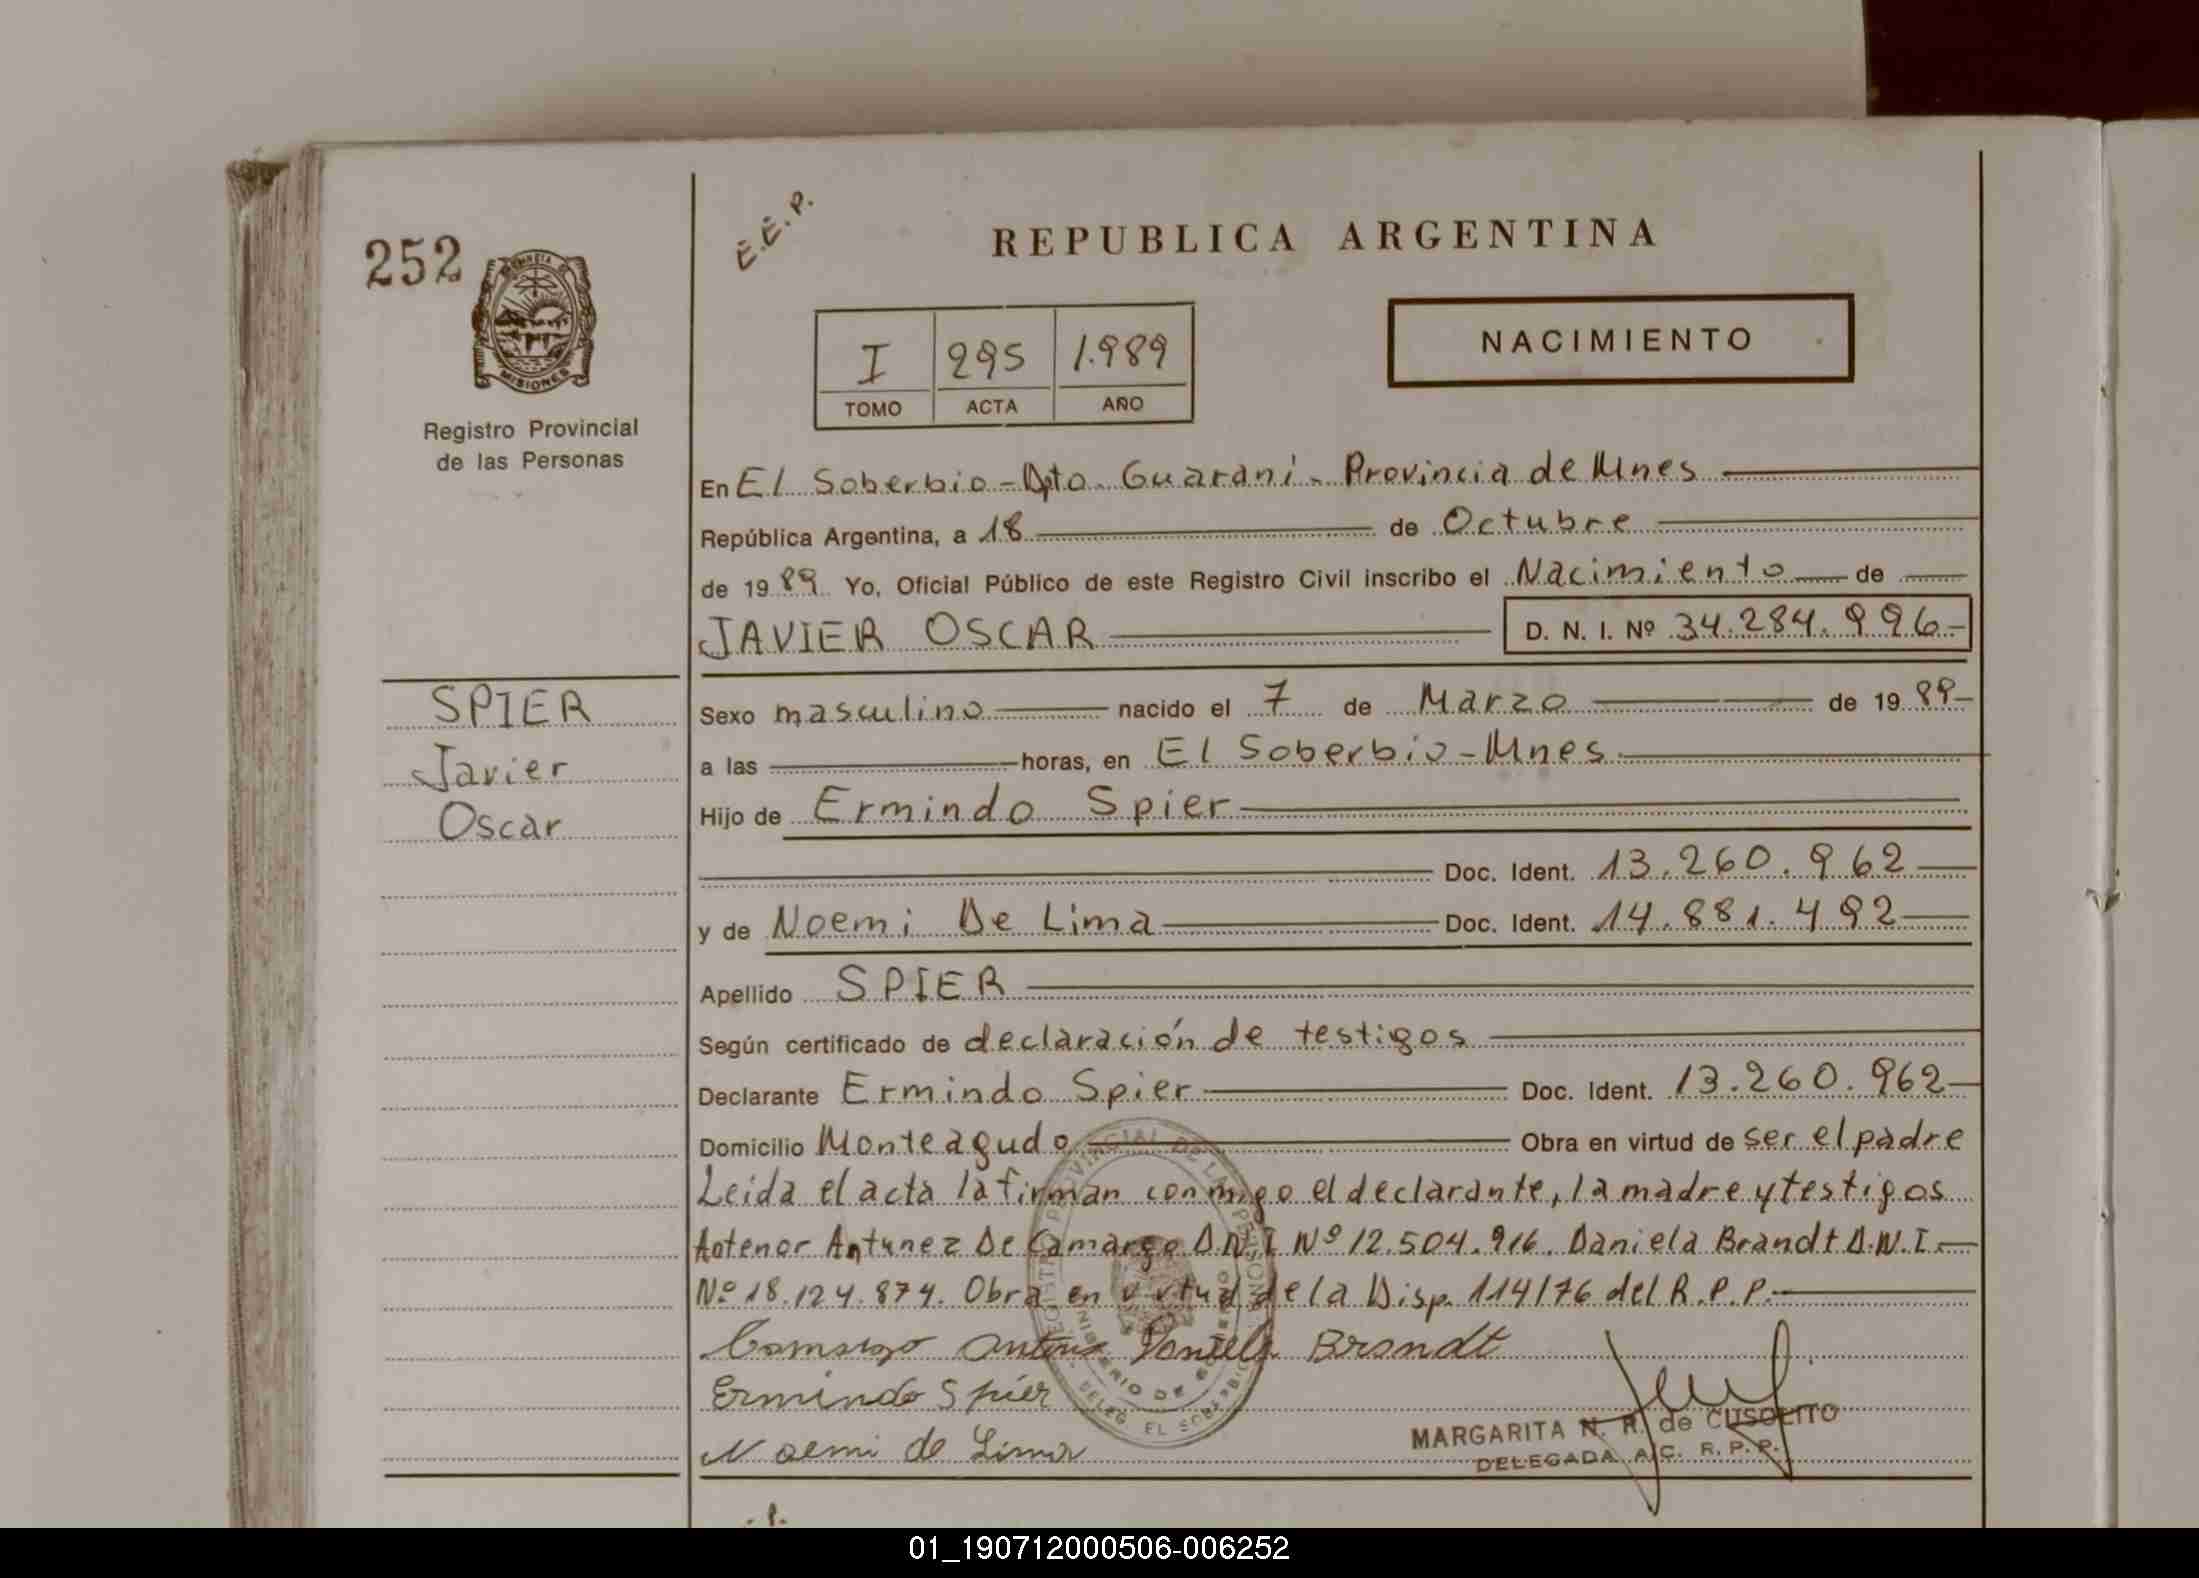 E.E.P.
REPUBLICA ARGENTINA
252
PROVINCIA DE
MISIONES
Registro Provincial
de las Personas
I 295 1.989
TOMO ACTA AÑO
NACIMIENTO
En El Soberbio - Dpto. Guaraní - Provincia de Mnes
República Argentina, a 18 de Octubre
de 1989 Yo, Oficial Público de este Registro Civil inscribo el Nacimiento de
JAVIER OSCAR D. N. I. Nº 34.284.996-
SPIER
Javier
Oscar
Sexo masculino nacido el 7 de Marzo de 1989-
a las horas, en El Soberbio - Mnes
Hijo de Ermindo Spier
Doc. Ident. 13.260.962
y de Noemi De Lima Doc. Ident. 14.881.492
Apellido SPIER
Según certificado de declaración de testigos
Declarante Ermindo Spier Doc. Ident. 13.260.962
Domicilio Monteagudo Obra en virtud de ser el padre
Leida el acta la firman conmigo el declarante, la madre y testigos
Antenor Antunez De Camargo D.N.I Nº 12.504.916. Daniela Brandt D.N.I.
Nº 18.124.874. Obra en virtud de la Disp. 114/76 del R.P.P.
Camargo Daniela Brandt
Ermindo Spier
Noemi de Lima
MARGARITA N. R. de CUSOLITO
DELEGADA A/C. R. P. P.
01_190712000506-006252